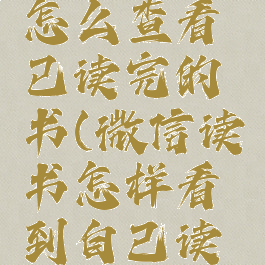 怎么查看
己读完的
书(微信读
书怎样看
到自己读